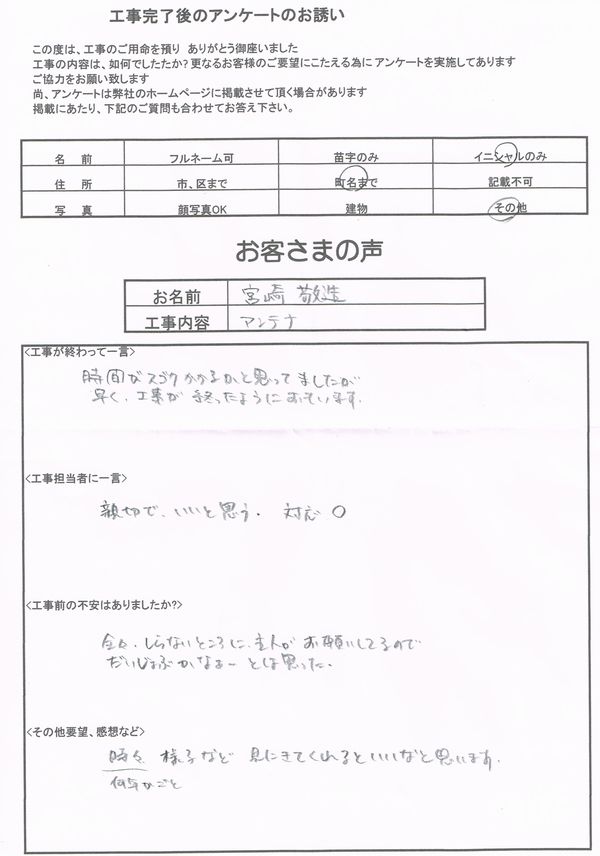 工事完了後のアンケートのお誘い
この度は、工事のご用命を預り ありがとう御座いました
工事の内容は、如何でしたたか?更なるお客様のご要望にこたえる為にアンケートを実施してあります
ご協力をお願い致します
尚、アンケートは弊社のホームページに掲載させて頂く場合があります
掲載にあたり、下記のご質問も合わせてお答え下さい。
名 前 フルネーム可 苗字のみ イニシャルのみ
住 所 市、区まで 町名まで 記載不可
写 真 顔写真OK 建物 その他
お客さまの声
お名前 宮崎 敬造
工事内容 アンテナ
<工事が終わって一言>
時間がスゴクかかるかと思ってましたが
早く、工事が 終ったように おもいます。
<工事担当者に一言>
親切で、いいと思う。 対応 〇
<工事前の不安はありましたか?>
全々、しらないところに、主人が お願いしてるので
だいじょぶかなぁー とは思った。
<その他要望、感想など>
時々 様子など 見にきてくれるといいなと思います。
何年かごと